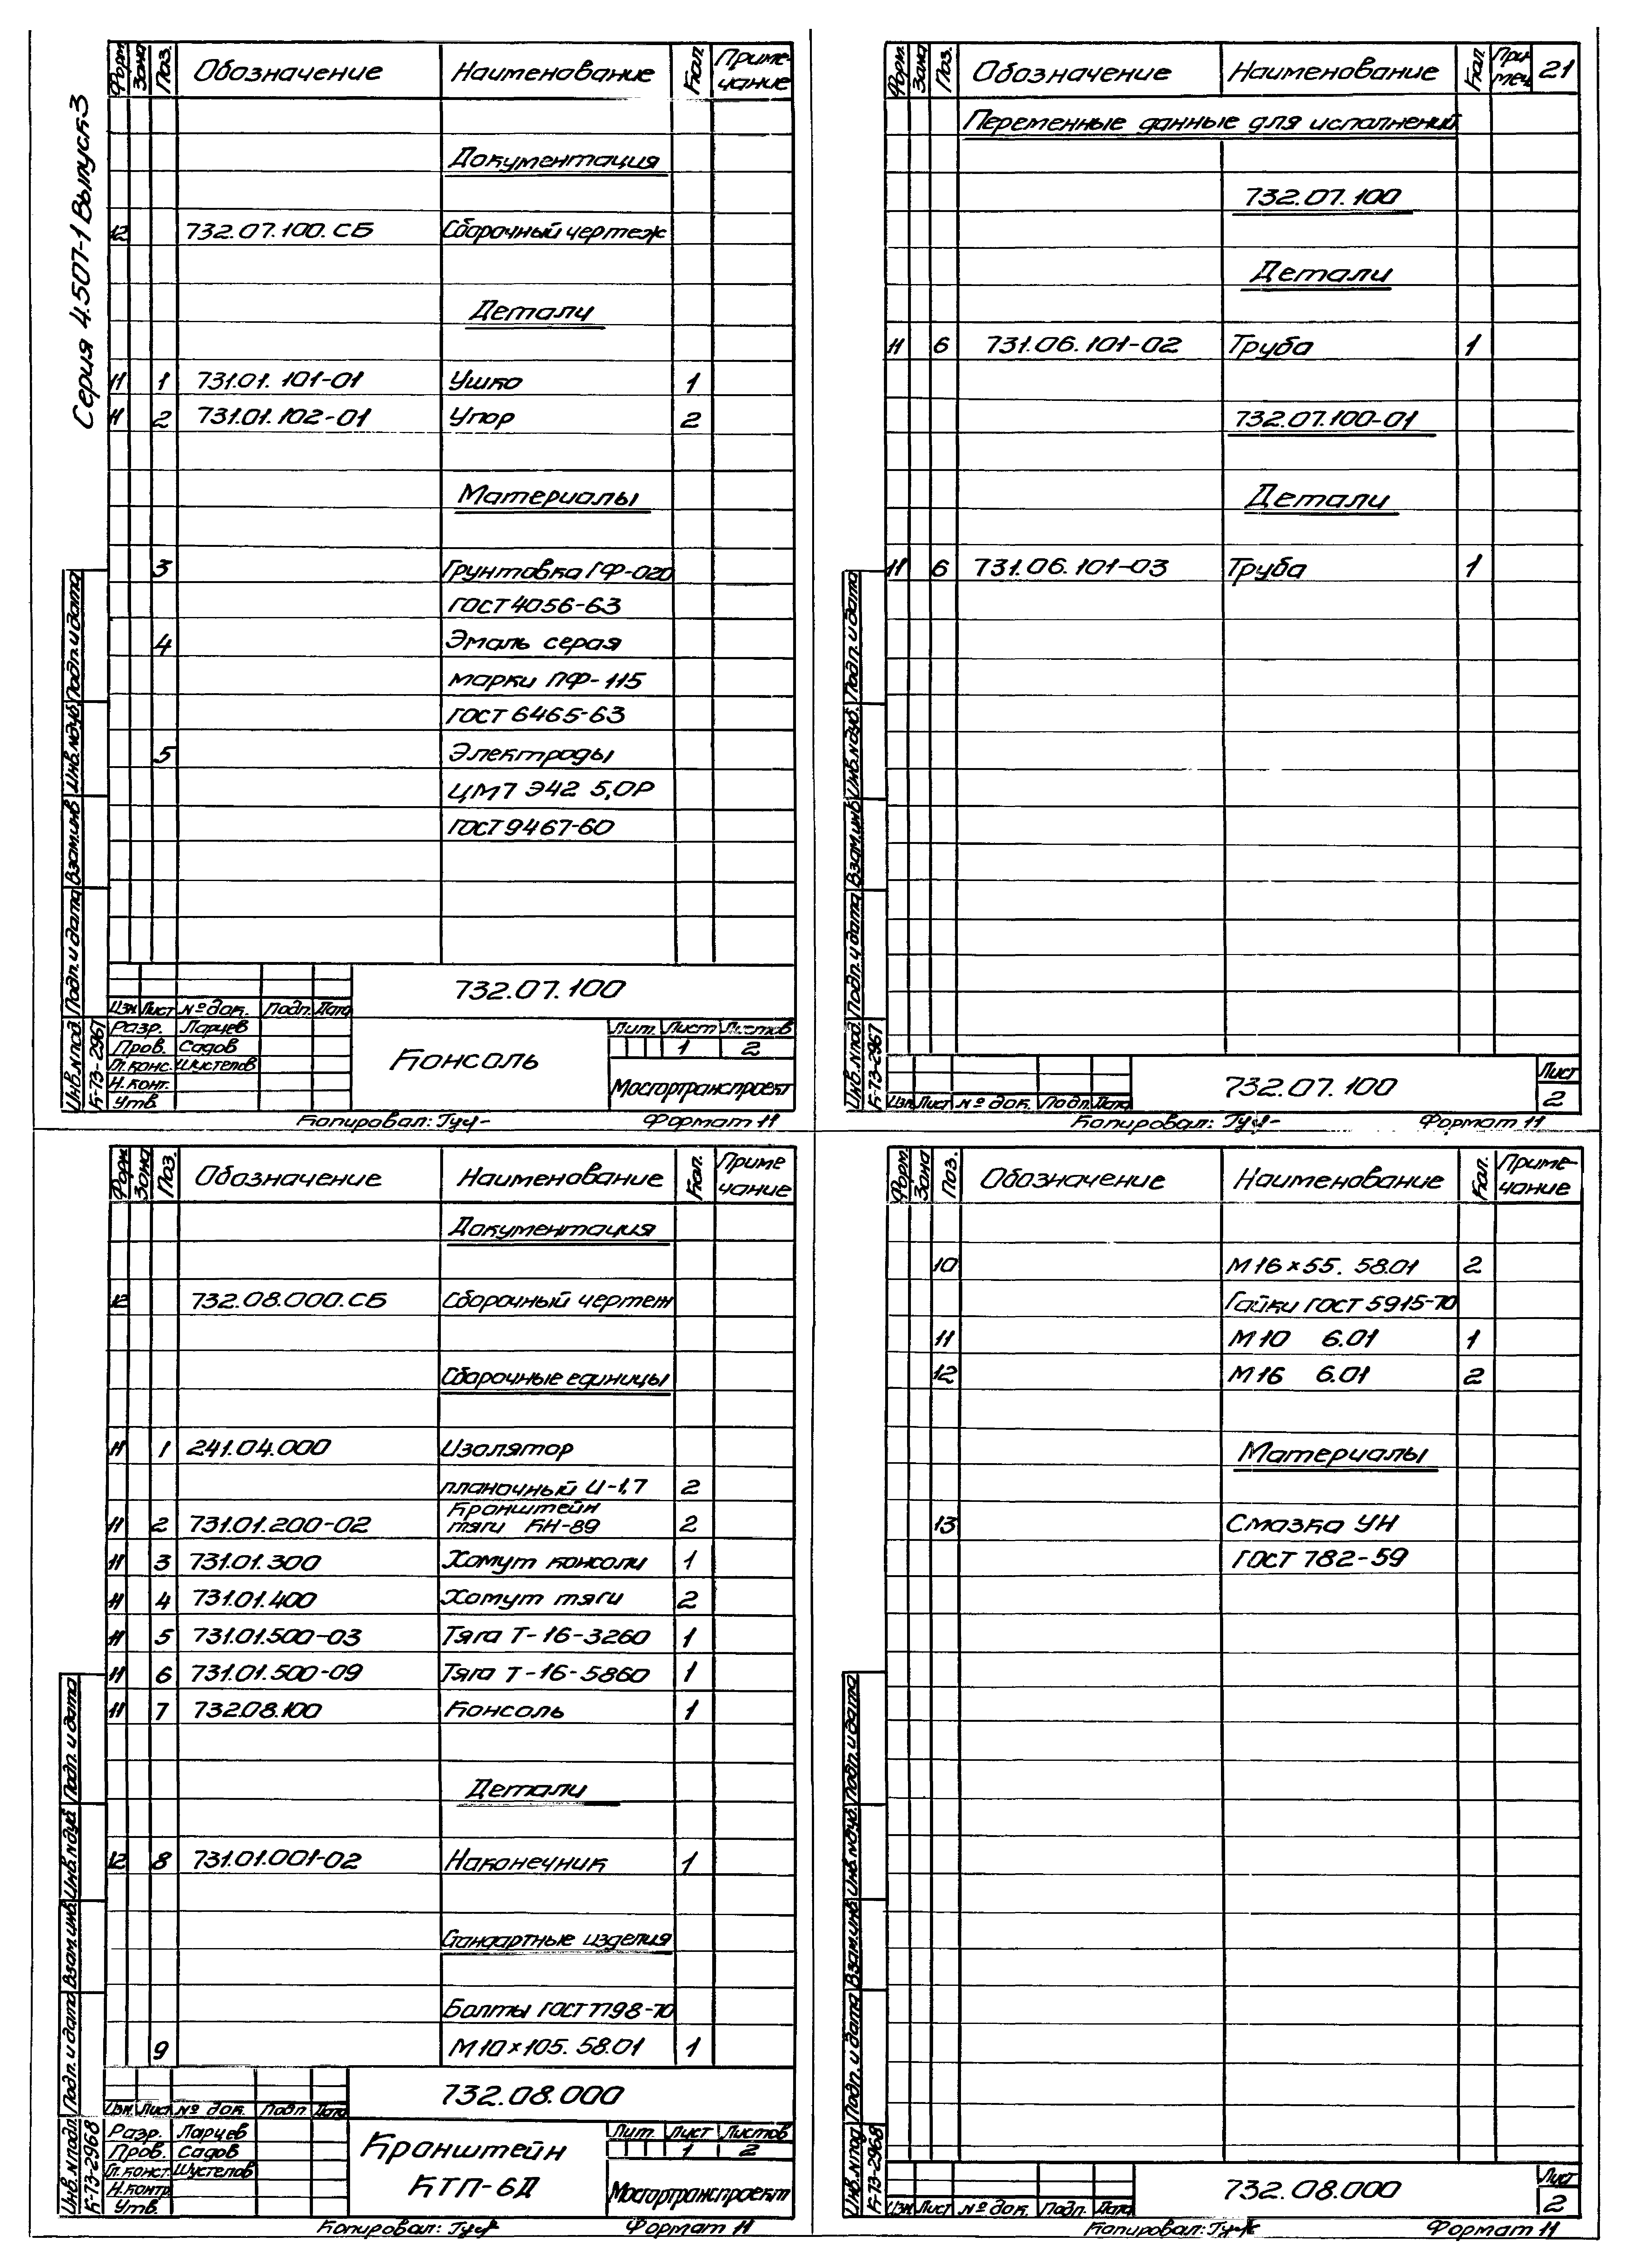 Серия 4.507-1 Выпуск 3
Форм. Зона Поз. Обозначение Наименование Кол. Приме-чание
Документация
12 732.07.100.СБ Сборочный чертеж
Детали
11 1 731.01.101-01 Ушко 1
11 2 731.01.102-01 Упор 2
Материалы
3 Грунтовка ГФ-020
ГОСТ 4056-63
4 Эмаль серая
марки ПФ-115
ГОСТ 6465-63
5 Электроды
ЦМ7 Э42 5,0Р
ГОСТ 9467-60
732.07.100
Изм. Лист № док. Подп. Дата
Разр. Ларчев
Пров. Садов
Гл.конс. Шустепов
Н.конт.
Утв.
Консоль
Лит. Лист Листов
1 2
Мосгортранспроект
Инв.№под. Подп. и дата Взам.инв Инв.№дуб. Подп. и дата
К-73-2967
Копировал: Формат 11
Форм. Зона Поз. Обозначение Наименование Кол. При меч 21
Переменные данные для исполнений
732.07.100
Детали
11 6 731.06.101-02 Труба 1
732.07.100-01
Детали
11 6 731.06.101-03 Труба 1
Изм. Лист № док. Подп. Дата
732.07.100
Лист
2
Инв.№под. Подп. и дата Взам.инв Инв.№дуб. Подп. и дата
К-73-2967
Копировал: Формат 11
Форм Зона Поз. Обозначение Наименование Кол. Приме чание
Документация
12 732.08.000.СБ Сборочный чертеж
Сборочные единицы
11 1 241.04.000 Изолятор
планочный И-1,7 2
11 2 731.01.200-02 Кронштейн тяги КН-89 2
11 3 731.01.300 Хомут консоли 1
11 4 731.01.400 Хомут тяги 2
11 5 731.01.500-03 Тяга Т-16-3260 1
11 6 731.01.500-09 Тяга Т-16-5860 1
11 7 732.08.100 Консоль 1
Детали
12 8 731.01.001-02 Наконечник 1
Стандартные изделия
Болты ГОСТ 7798-70
9 М10×105. 58.01 1
732.08.000
Изм. Лист № док. Подп Дата
Разр. Ларчев
Пров. Садов
Гл.конст. Шустепов
Н.контр
Утв.
Кронштейн
КТП-6Д
Лит. Лист Листов
1 2
Мосгортранспроект
Инв.№подл. Подп. и дата Взам.инв. Инв.№дуб Подп. и дата
К-73-2968
Копировал: Формат 11
Форм. Зона Поз. Обозначение Наименование Кол. Приме-чание
10 М16×55. 58.01 2
Гайки ГОСТ 5915-70
11 М10 6.01 1
12 М16 6.01 2
Материалы
13 Смазка УН
ГОСТ 782-59
Изм. Лист № док. Подп. Дата
732.08.000
Лист
2
Инв.№под Подп. и дата Взам.инв Инв.№дуб. Подп. и дата
К-73-2968
Копировал: Формат 11